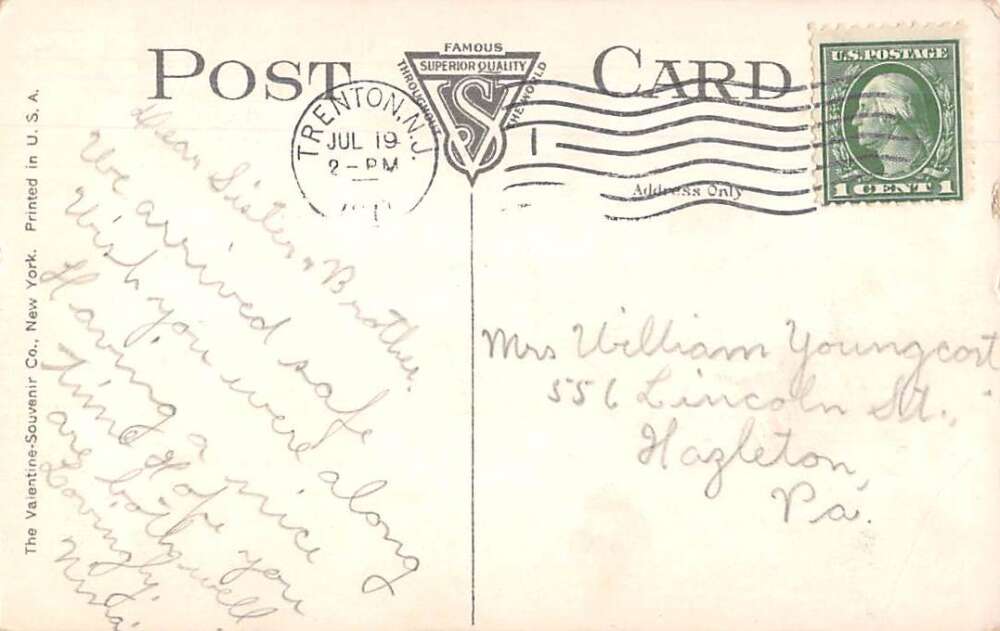 POST CARD
FAMOUS
SUPERIOR QUALITY
THROUGHOUT THE WORLD
VS
TRENTON, N.J.
JUL 19
2-PM
1
U.S. POSTAGE
1 CENT 1
Address Only
The Valentine-Souvenir Co., New York. Printed in U. S. A.
Dear Sister & Brother.
We arrived safe
Wish you were along
Having a nice
time Hope you
are both well
Lovingly,
Mrs William Youngcort
556 Lincoln St.,
Hazleton,
Pa.